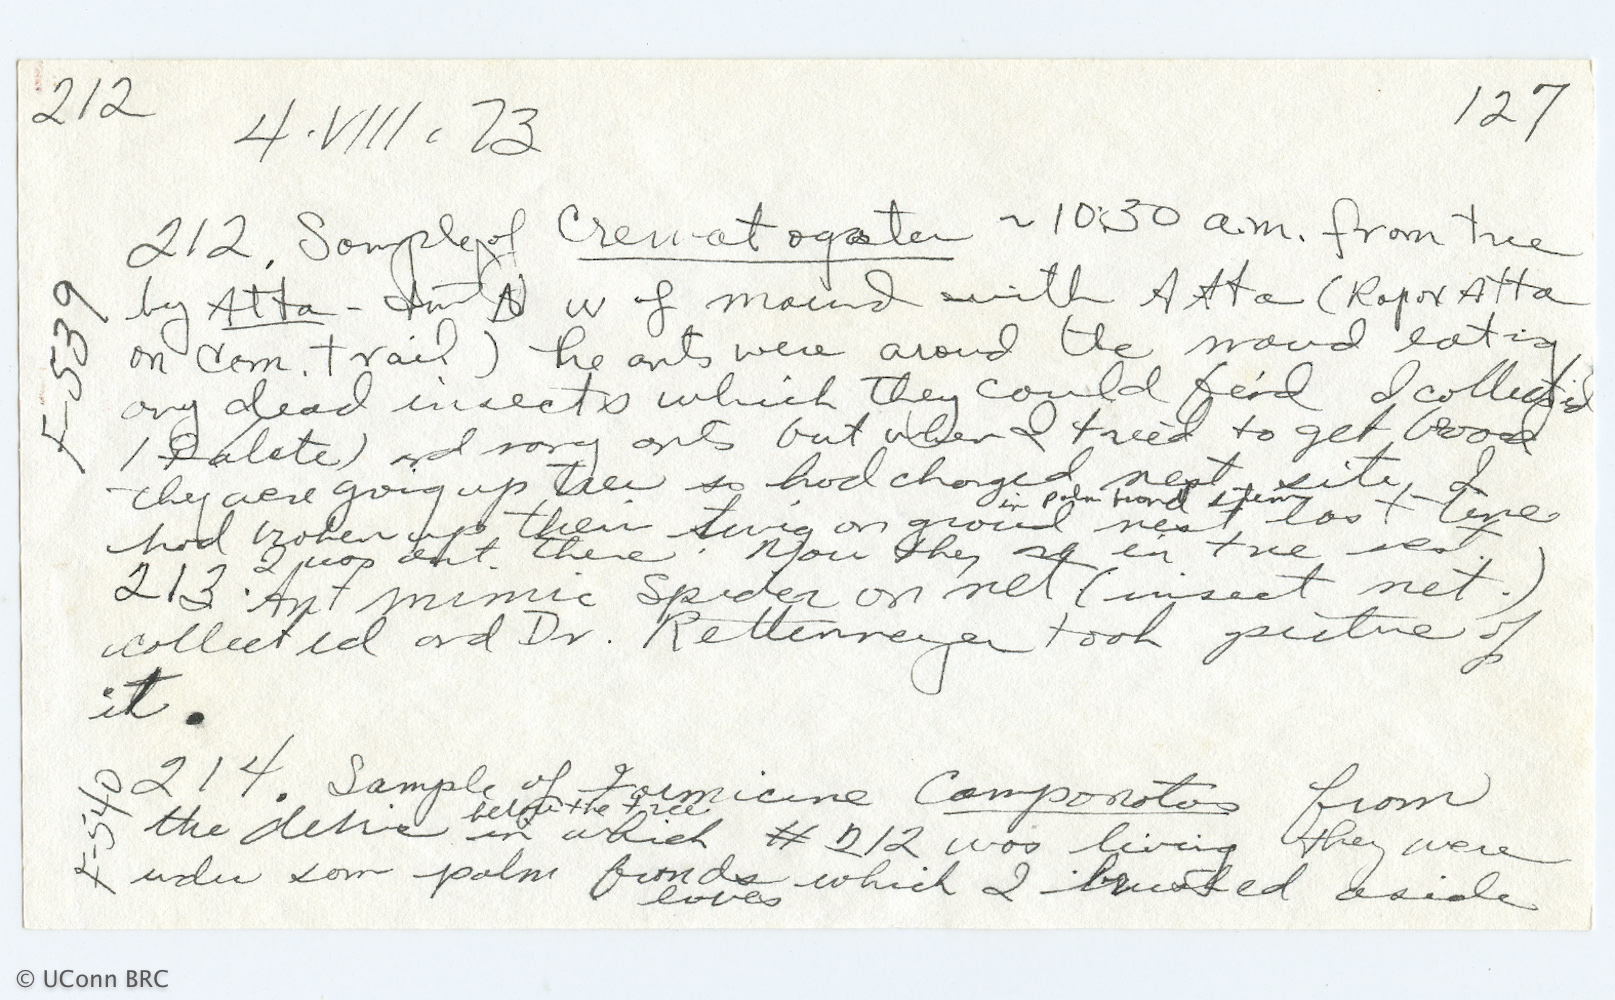 212
127
4.VIII.73
212. Sample of Crematogaster ~10:30 a.m. from tree
by Atta - W of mound with Atta (Rapor Atta
on Cam. trail) he ants were around the mound eating
any dead insects which they could feind I collected
1 alate) and ants but when I tried to get brood
they were going up tree so had changed nest site, I
in palm frond stem
had broken up their twig on ground nest last time
I was out there. Now they in tree nest.
213. Ant mimic Spider on net (insect net.)
collected and Dr. Rettenmeyer took picture of
it.
214. Sample of Formicine Camponotus from
below the tree
the debrie in which # 212 was living they were
under som palm fronds which I brusted aside
leaves
F-539
F-540
© UConn BRC